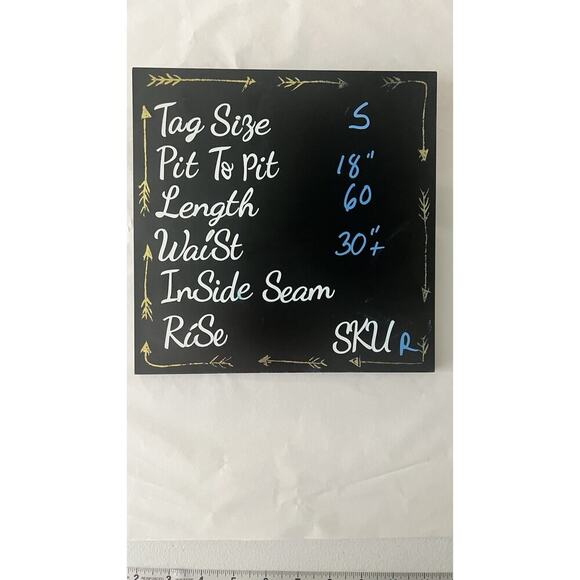 Tag Size S
Pit To Pit 18"
Length 60
Waist 30"+
InSide Seam
RiSe SKU R
2 3 4 5 6 7 8 9 10 11